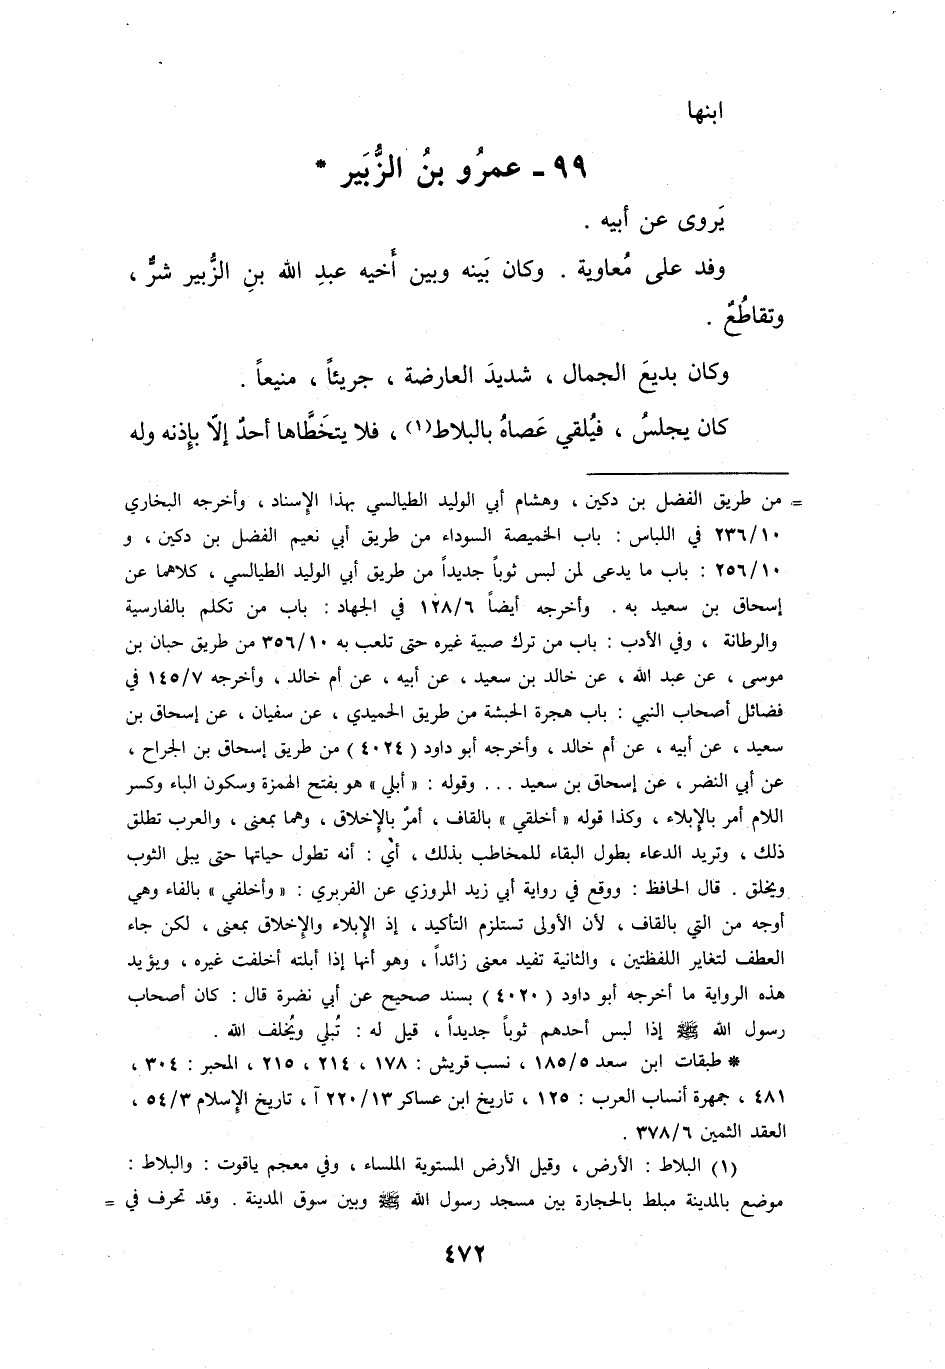 ابنها
٩٩ - عمرُو بنُ الزُّبَير *
يَروى عن أبيه .
وفد على مُعاوية . وكان بَينه وبين أَخيه عبدِ الله بنِ الزُّبير شرٌّ ،
وتقاطُعٌ .
وكان بديعَ الجمال ، شديدَ العارضة ، جريئاً ، منيعاً .
كان يجلسُ ، فيُلقي عَصاهُ بالبلاط(١) ، فلا يتخَطَّاها أحدٌ إلّا بإذنه وله
= من طريق الفضل بن دكين ، وهشام أبي الوليد الطيالسي بهذا الإسناد ، وأخرجه البخاري
٢٣٦/١٠ في اللباس : باب الخميصة السوداء من طريق أبي نعيم الفضل بن دكين ، و
٢٥٦/١٠ : باب ما يدعى لمن لبس ثوباً جديداً من طريق أبي الوليد الطيالسي ، كلاهما عن
إسحاق بن سعيد به . وأخرجه أيضاً ١٢٨/٦ في الجهاد : باب من تكلم بالفارسية
والرطانة ، وفي الأدب : باب من ترك صبية غيره حتى تلعب به ٣٥٦/١٠ من طريق حبان بن
موسى ، عن عبد الله ، عن خالد بن سعيد ، عن أبيه ، عن أم خالد ، وأخرجه ١٤٥/٧ في
فضائل أصحاب النبي : باب هجرة الحبشة من طريق الحميدي ، عن سفيان ، عن إسحاق بن
سعيد ، عن أبيه ، عن أم خالد ، وأخرجه أبو داود ( ٤٠٢٤ ) من طريق إسحاق بن الجراح ،
عن أبي النضر ، عن إسحاق بن سعيد ... وقوله : « أبلي » هو بفتح الهمزة وسكون الباء وكسر
اللام أمر بالإبلاء ، وكذا قوله « أخلقي » بالقاف ، أمرٌ بالإخلاق ، وهما بمعنى ، والعرب تطلق
ذلك ، وتريد الدعاء بطول البقاء للمخاطب بذلك ، أي : أنه تطول حياتها حتى يبلى الثوب
ويخلق . قال الحافظ : ووقع في رواية أبي زيد المروزي عن الفربري : « وأخلفي » بالفاء وهي
أوجه من التي بالقاف ، لأن الأولى تستلزم التأكيد ، إذ الإبلاء والإخلاق بمعنى ، لكن جاء
العطف لتغاير اللفظتين ، والثانية تفيد معنى زائداً ، وهو أنها إذا أبلته أخلفت غيره ، ويؤيد
هذه الرواية ما أخرجه أبو داود ( ٤٠٢٠ ) بسند صحيح عن أبي نضرة قال : كان أصحاب
رسول الله ﷺ إذا لبس أحدهم ثوباً جديداً ، قيل له : تُبلي ويُخلف الله .
* طبقات ابن سعد ١٨٥/٥ ، نسب قريش : ١٧٨ ، ٢١٤ ، ٢١٥ ، المحبر : ٣٠٤ ،
٤٨١ ، جمهرة أنساب العرب : ١٢٥ ، تاريخ ابن عساكر ٢٢٠/١٣ آ ، تاريخ الإسلام ٥٤/٣ ،
العقد الثمين ٣٧٨/٦ .
(١) البلاط : الأرض ، وقيل الأرض المستوية الملساء ، وفي معجم ياقوت : والبلاط :
موضع بالمدينة مبلط بالحجارة بين مسجد رسول الله ﷺ وبين سوق المدينة . وقد تحرف في =
٤٧٢